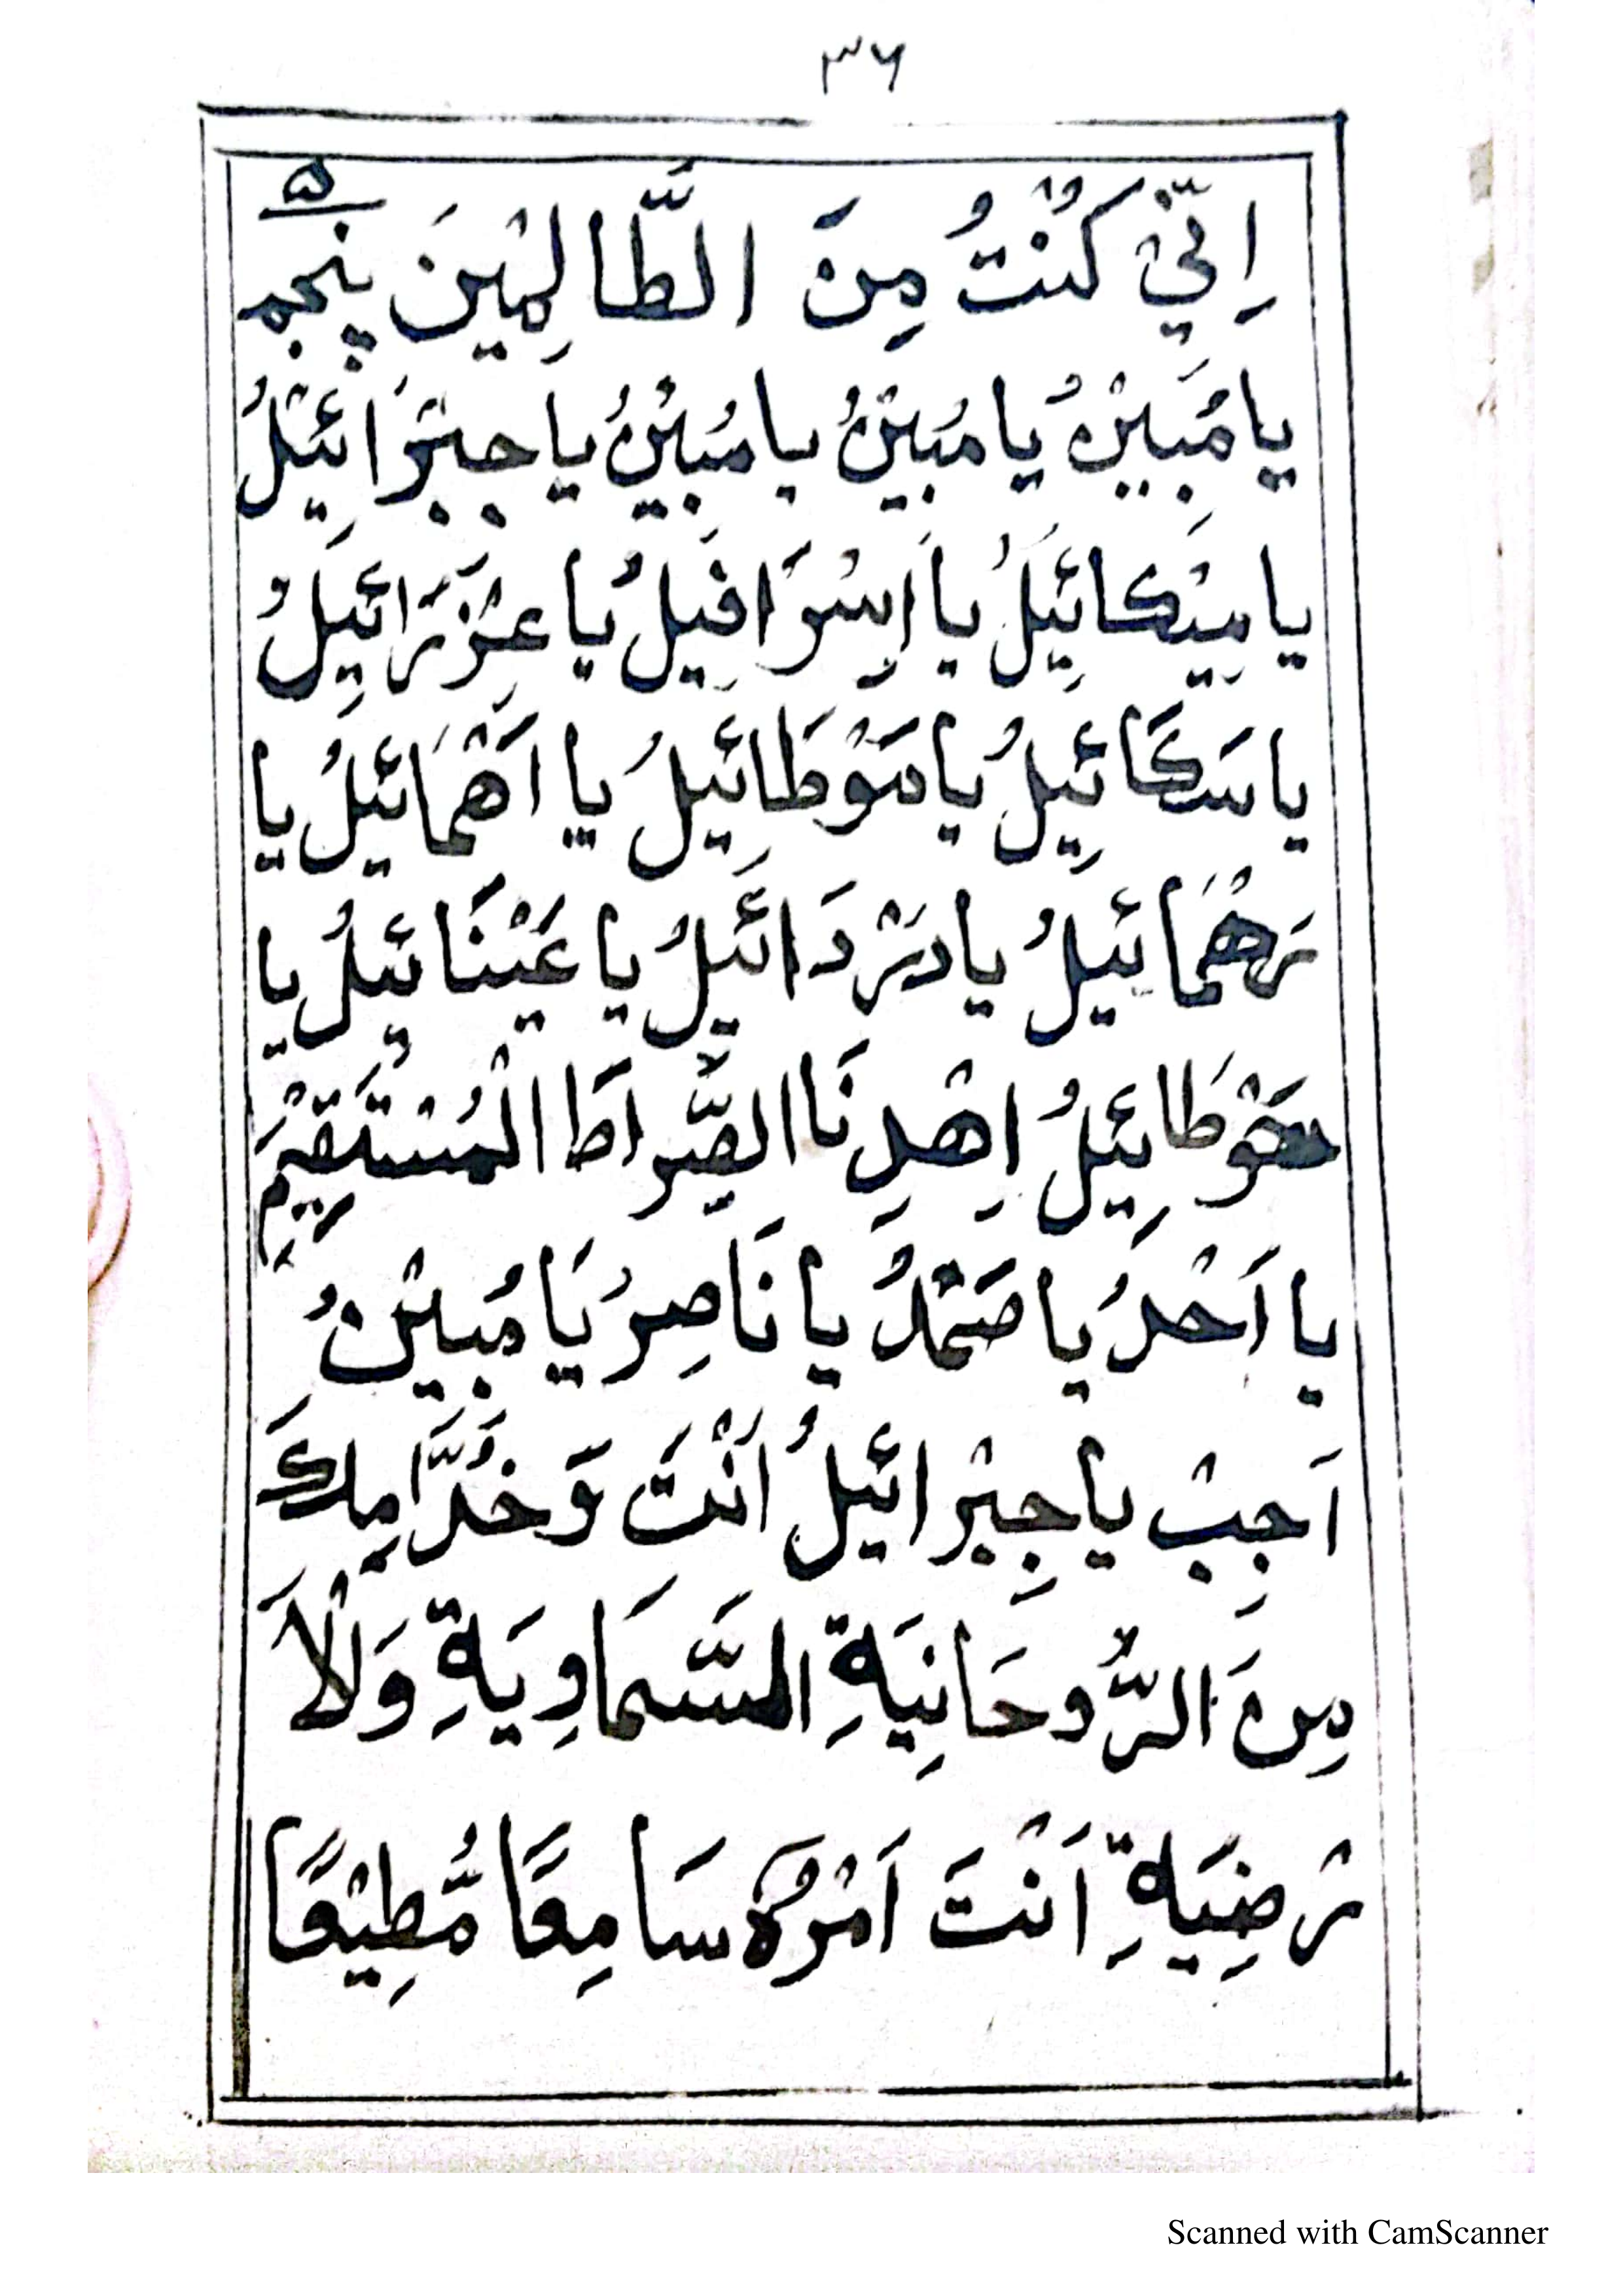 ۳۶
۵
اِنِّيْ كُنْتُ مِنَ الطَّالِمِيْنَ پنجم
يا مُبِيْنُ يا مُبِيْنُ يا مُبِيْنُ يا جِبْرَائِيْلُ
يا مِيْكائِيلُ يا اِسْرَافِيلُ يا عِزْرَائِيلُ
يا سَكَائِيلُ يا مَوْطَائِيلُ يا اَهْمَائيلُ يا
رَهْمَائيلُ يا دَرْدَائيلُ يا عَيْنَائيلُ يا
حَوْطَائِيلُ اِهْدِنَا الصِّرَاطَ الْمُسْتَقِيْمَ
يا اَحْدُ يا صَمَدُ يا نَاصِرُ يَا مُبِيْنُ
اَجِبْ يا جِبْرائيلُ اَنْتَ وَخُدَّامِكَ
مِنَ الرُّوحَانِيَةِ السَّمَاوِيَةِ وَلْاَ
رْضِيَةِ اَنْتَ اَمْرُهُ سَامِعًا مُّطِيْعًا
Scanned with CamScanner